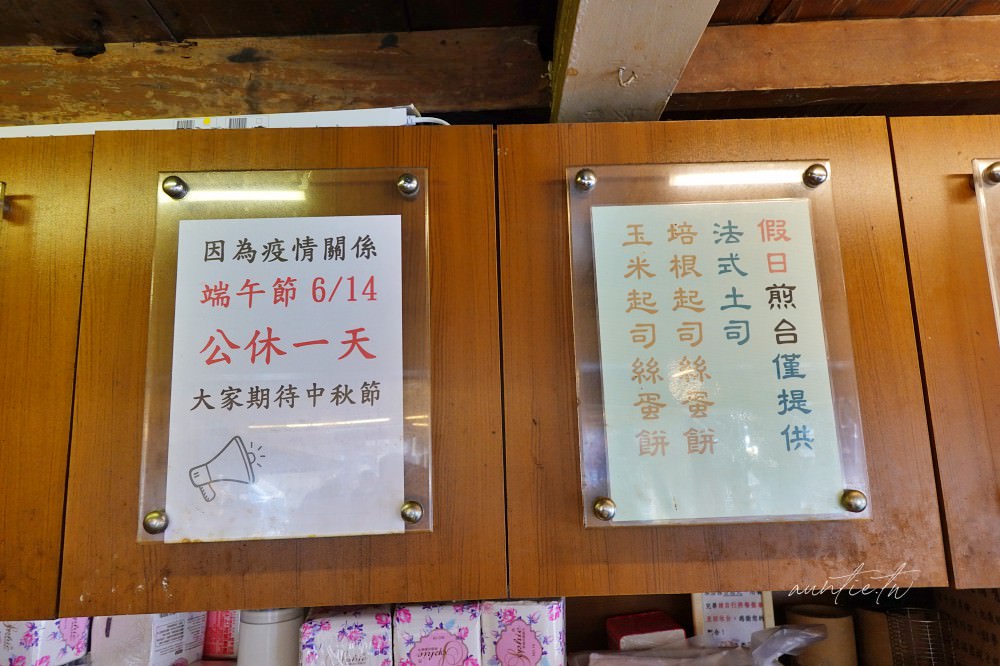 因為疫情關係
端午節 6/14
公休一天
大家期待中秋節
假日煎台僅提供
法式土司
培根起司絲蛋餅
玉米起司絲蛋餅
auntie.tw